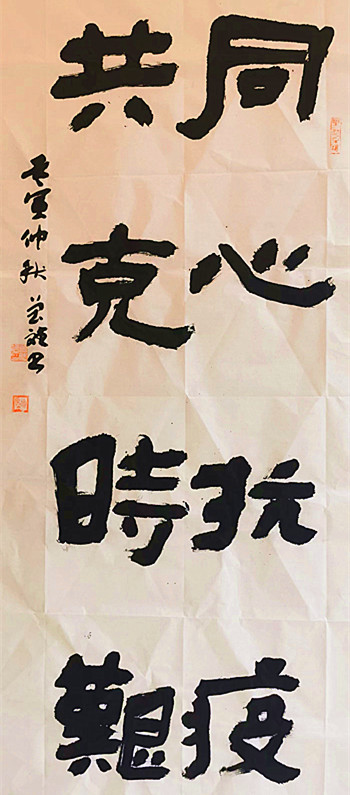 同心抗疫
共克時艱
壬寅仲秋